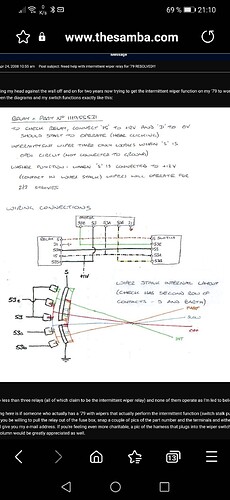 69 % 21:10
www.thesamba.com
Message
Post subject: Need help with intermittent wiper relay for '79 RESOLVED!!!
king my head against the wall off and on for two years now trying to get the intermittent wiper function on my '79 to wor
en the diagrams and my switch functions exactly like this:
RELAY = PART NO
TO CHECK RELAY, CONNECT '15' TO +12V AND 'J' TO 0V
SHOULD START TO OPERATE (HEAR CLICKING)
INTERMITTENT WIPER TIMER ONLY WORKS WHEN 'S' IS
OPEN CIRCUIT (NOT CONNECTED TO GROUND)
WASHER FUNCTION - WHEN 'S' IS CONNECTED TO +12V
(CONTACT IN WIPER STALK) WIPERS WILL OPERATE FOR
WIRING CONNECTIONS
MOTOR
53E 53 53A 53B 31
RELAY
SWITCH
+12V
WIPER STALK INTERNAL LAYOUT
(CHECK HAS SECOND ROW OF
CONTACTS - S AND EARTH)
PARK
INT
less than three relays (all of which claim to be the intermittent wiper relay) and none of them operate as I'm led to bel
ng here is if someone who actually has a '79 with wipers that actually perform the intermittent function (switch stalk pu
you be willing to pull the relay out of the fuse box, snap a couple of pics of the part number and the terminals and eithe
d give you my e-mail address. If you're feeling even more charitable, a pic of the harness that plugs into the wiper switc
column would be greatly appreciated as well.
13